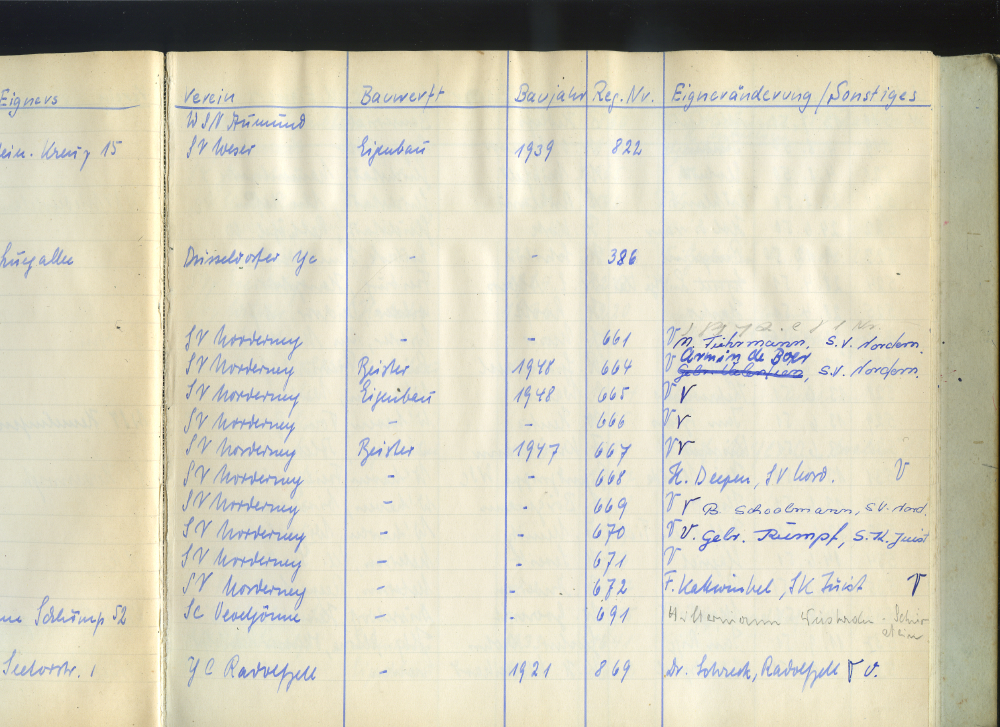 Eigners Verein Bauwerft Baujahr Reg. Nr. Eigneränderung / Sonstiges
WSV Aumund
Kreuz 15 SV Weser Eigenbau 1939 822
Düsseldorfer Yc - - 386
SV Norderney - - 661 V N. Fuhrmann, S.V. Nordern.
Armin de Boer
SV Norderney Beister 1948 664 V , S.V. Nordern.
SV Norderney Eigenbau 1948 665 V V
SV Norderney - - 666 V V
SV Norderney Beister 1947 667 V V
SV Norderney - - 668 H. Deepen, SV Nord. V
SV Norderney - - 669 V V B. Schoolmann, SV. Nord.
SV Norderney - - 670 V V. Gebr. Rumpf, S.K. Juist
SV Norderney - - 671 V
SV Norderney - - 672 F. Kattwinkel, SK Juist V
52 SC - - 691
Seetorstr. 1 YC Radolfzell - 1921 869 Dr. Schreck, Radolfzell V V.